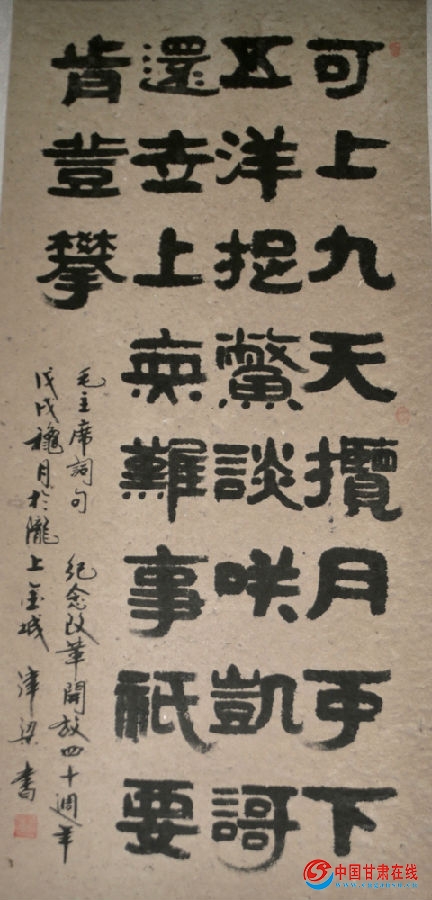 可上九天攬月可下
五洋捉鱉談咲凱謌
還世上無難事祇要
肯登攀
毛主席詞句 紀念改革開放四十週年
戊戌穐月於隴上金城 津梁書
中国甘肃在线